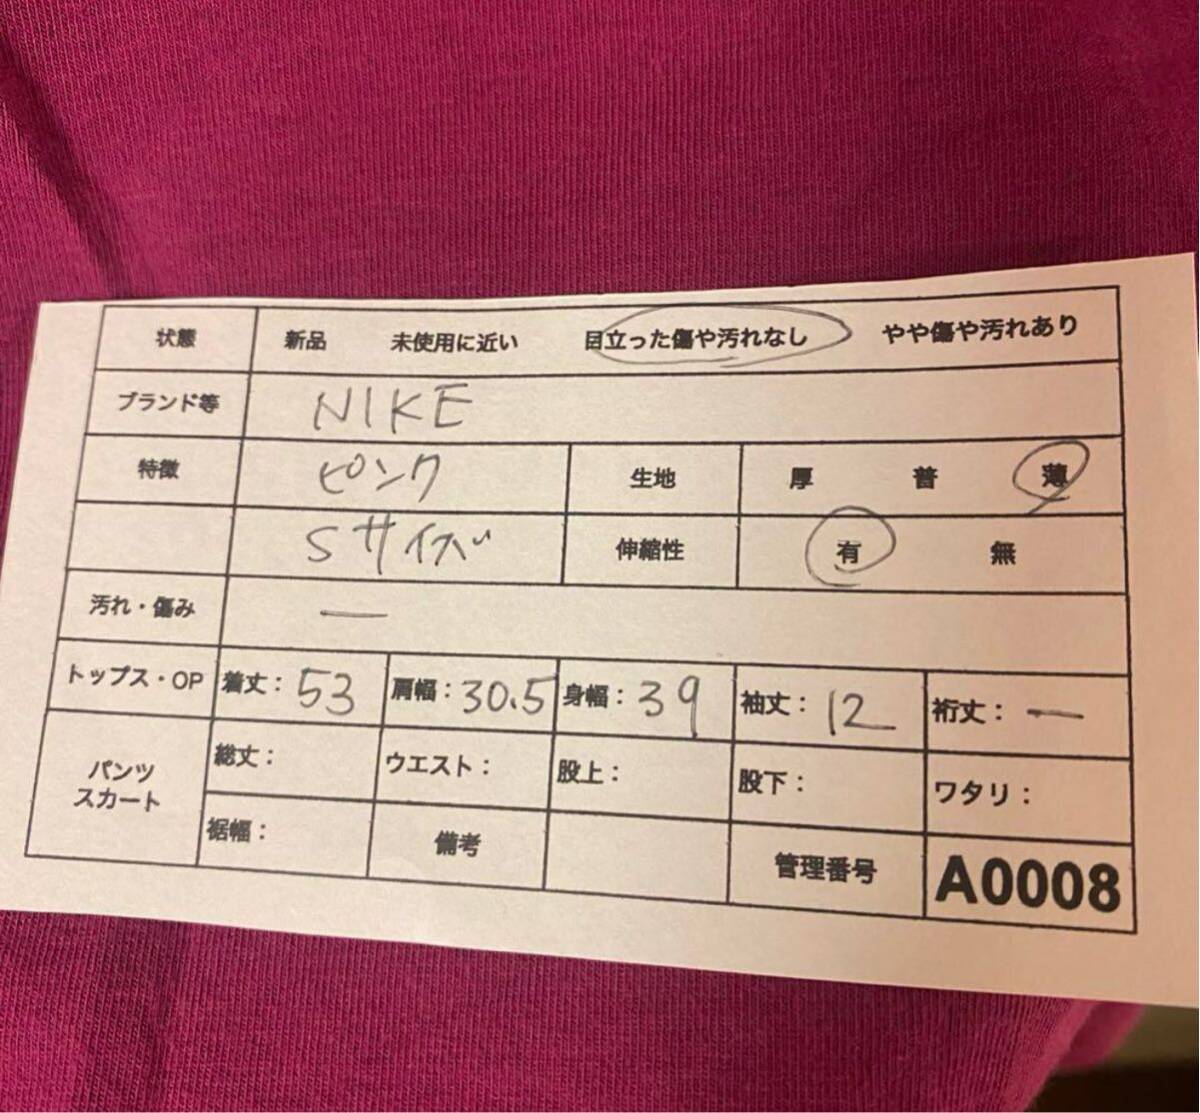 状態 新品 未使用に近い 目立った傷や汚れなし やや傷や汚れあり
ブランド等 NIKE
特徴 ピンク 生地 厚 普 薄
Sサイズ 伸縮性 有 無
汚れ・傷み ー
トップス・OP 着丈：53 肩幅：30.5 身幅：39 袖丈：12 裄丈：ー
パンツ
スカート
総丈： ウエスト： 股上： 股下： ワタリ：
裾幅： 備考 管理番号 A0008